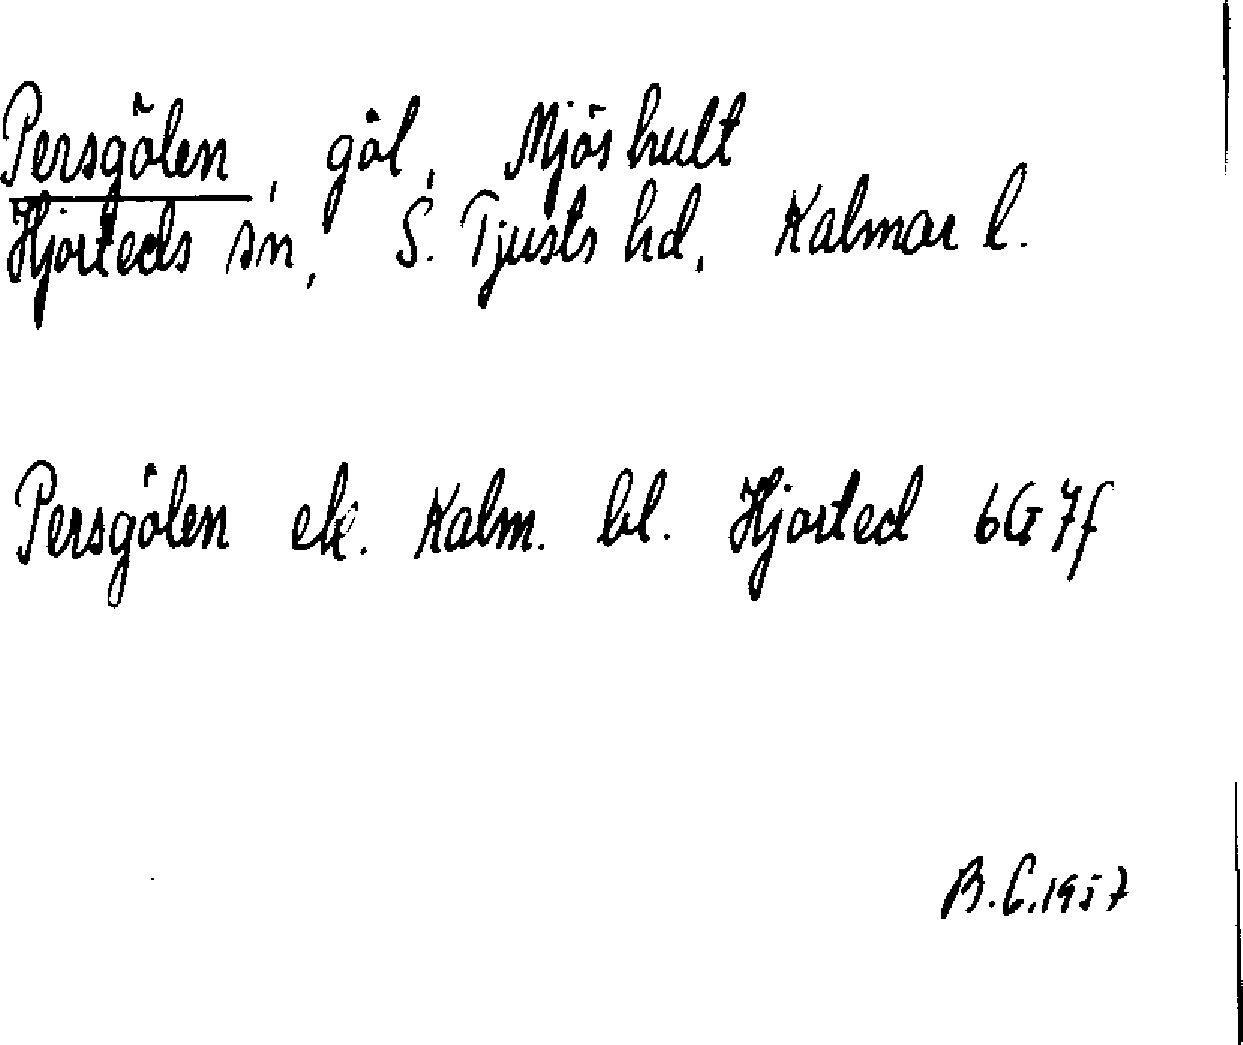 Persgölen, göl, Mjöshult
Hjorteds sn, S. Tjusts hd, Kalmar l.
Persgölen ek. Kalm. bl. Hjorted 6G 7f
B.C. 1957